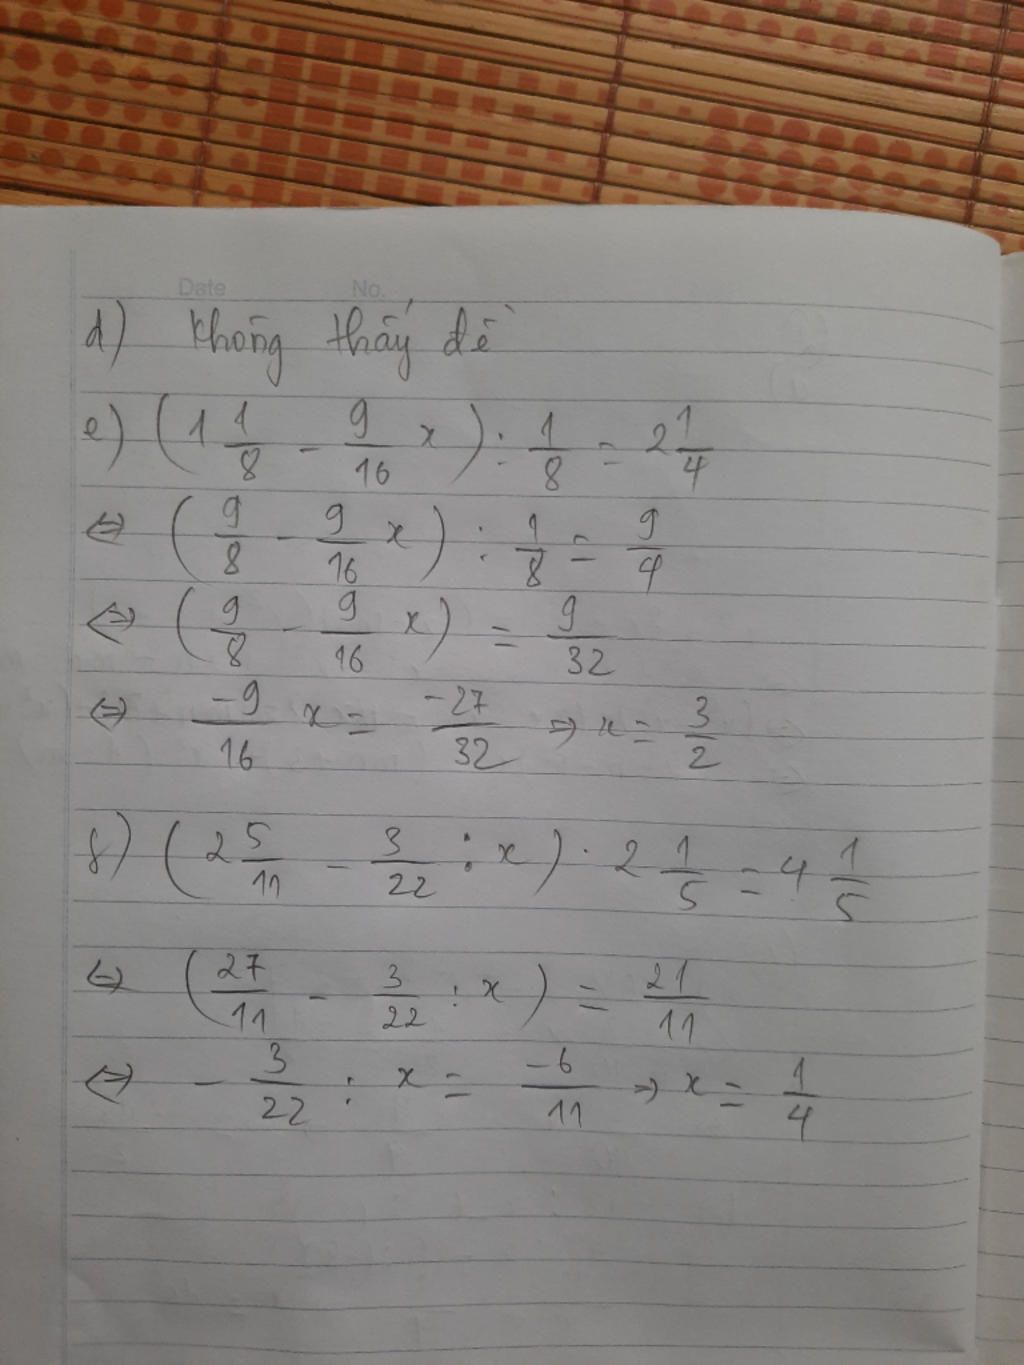 Date No.
d) Không thấy đề
e) (1 1/8 - 9/16 x) : 1/8 = 2 1/4
⇔ (9/8 - 9/16 x) : 1/8 = 9/4
⇔ (9/8 - 9/16 x) = 9/32
⇔ -9/16 x = -27/32 ⇒ x = 3/2
f) (2 5/11 - 3/22 : x) . 2 1/5 = 4 1/5
⇔ (27/11 - 3/22 : x) = 21/11
⇔ - 3/22 : x = -6/11 ⇒ x = 1/4